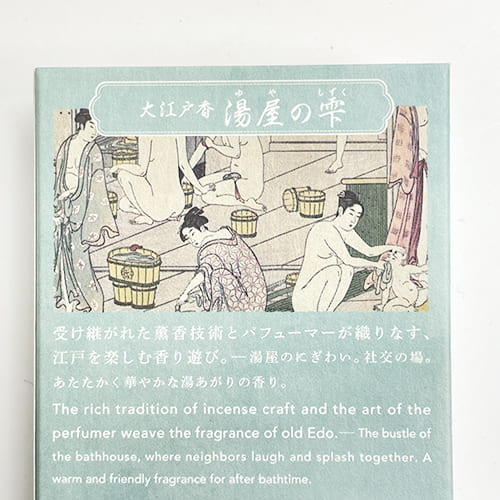 大江戸香 湯屋の雫
ゆ や しずく
受け継がれた薫香技術とパフューマーが織りなす、
江戸を楽しむ香り遊び。―湯屋のにぎわい。社交の場。
あたたかく華やかな湯あがりの香り。
The rich tradition of incense craft and the art of the
perfumer weave the fragrance of old Edo.― The bustle of
the bathhouse, where neighbors laugh and splash together. A
warm and friendly fragrance for after bathtime.